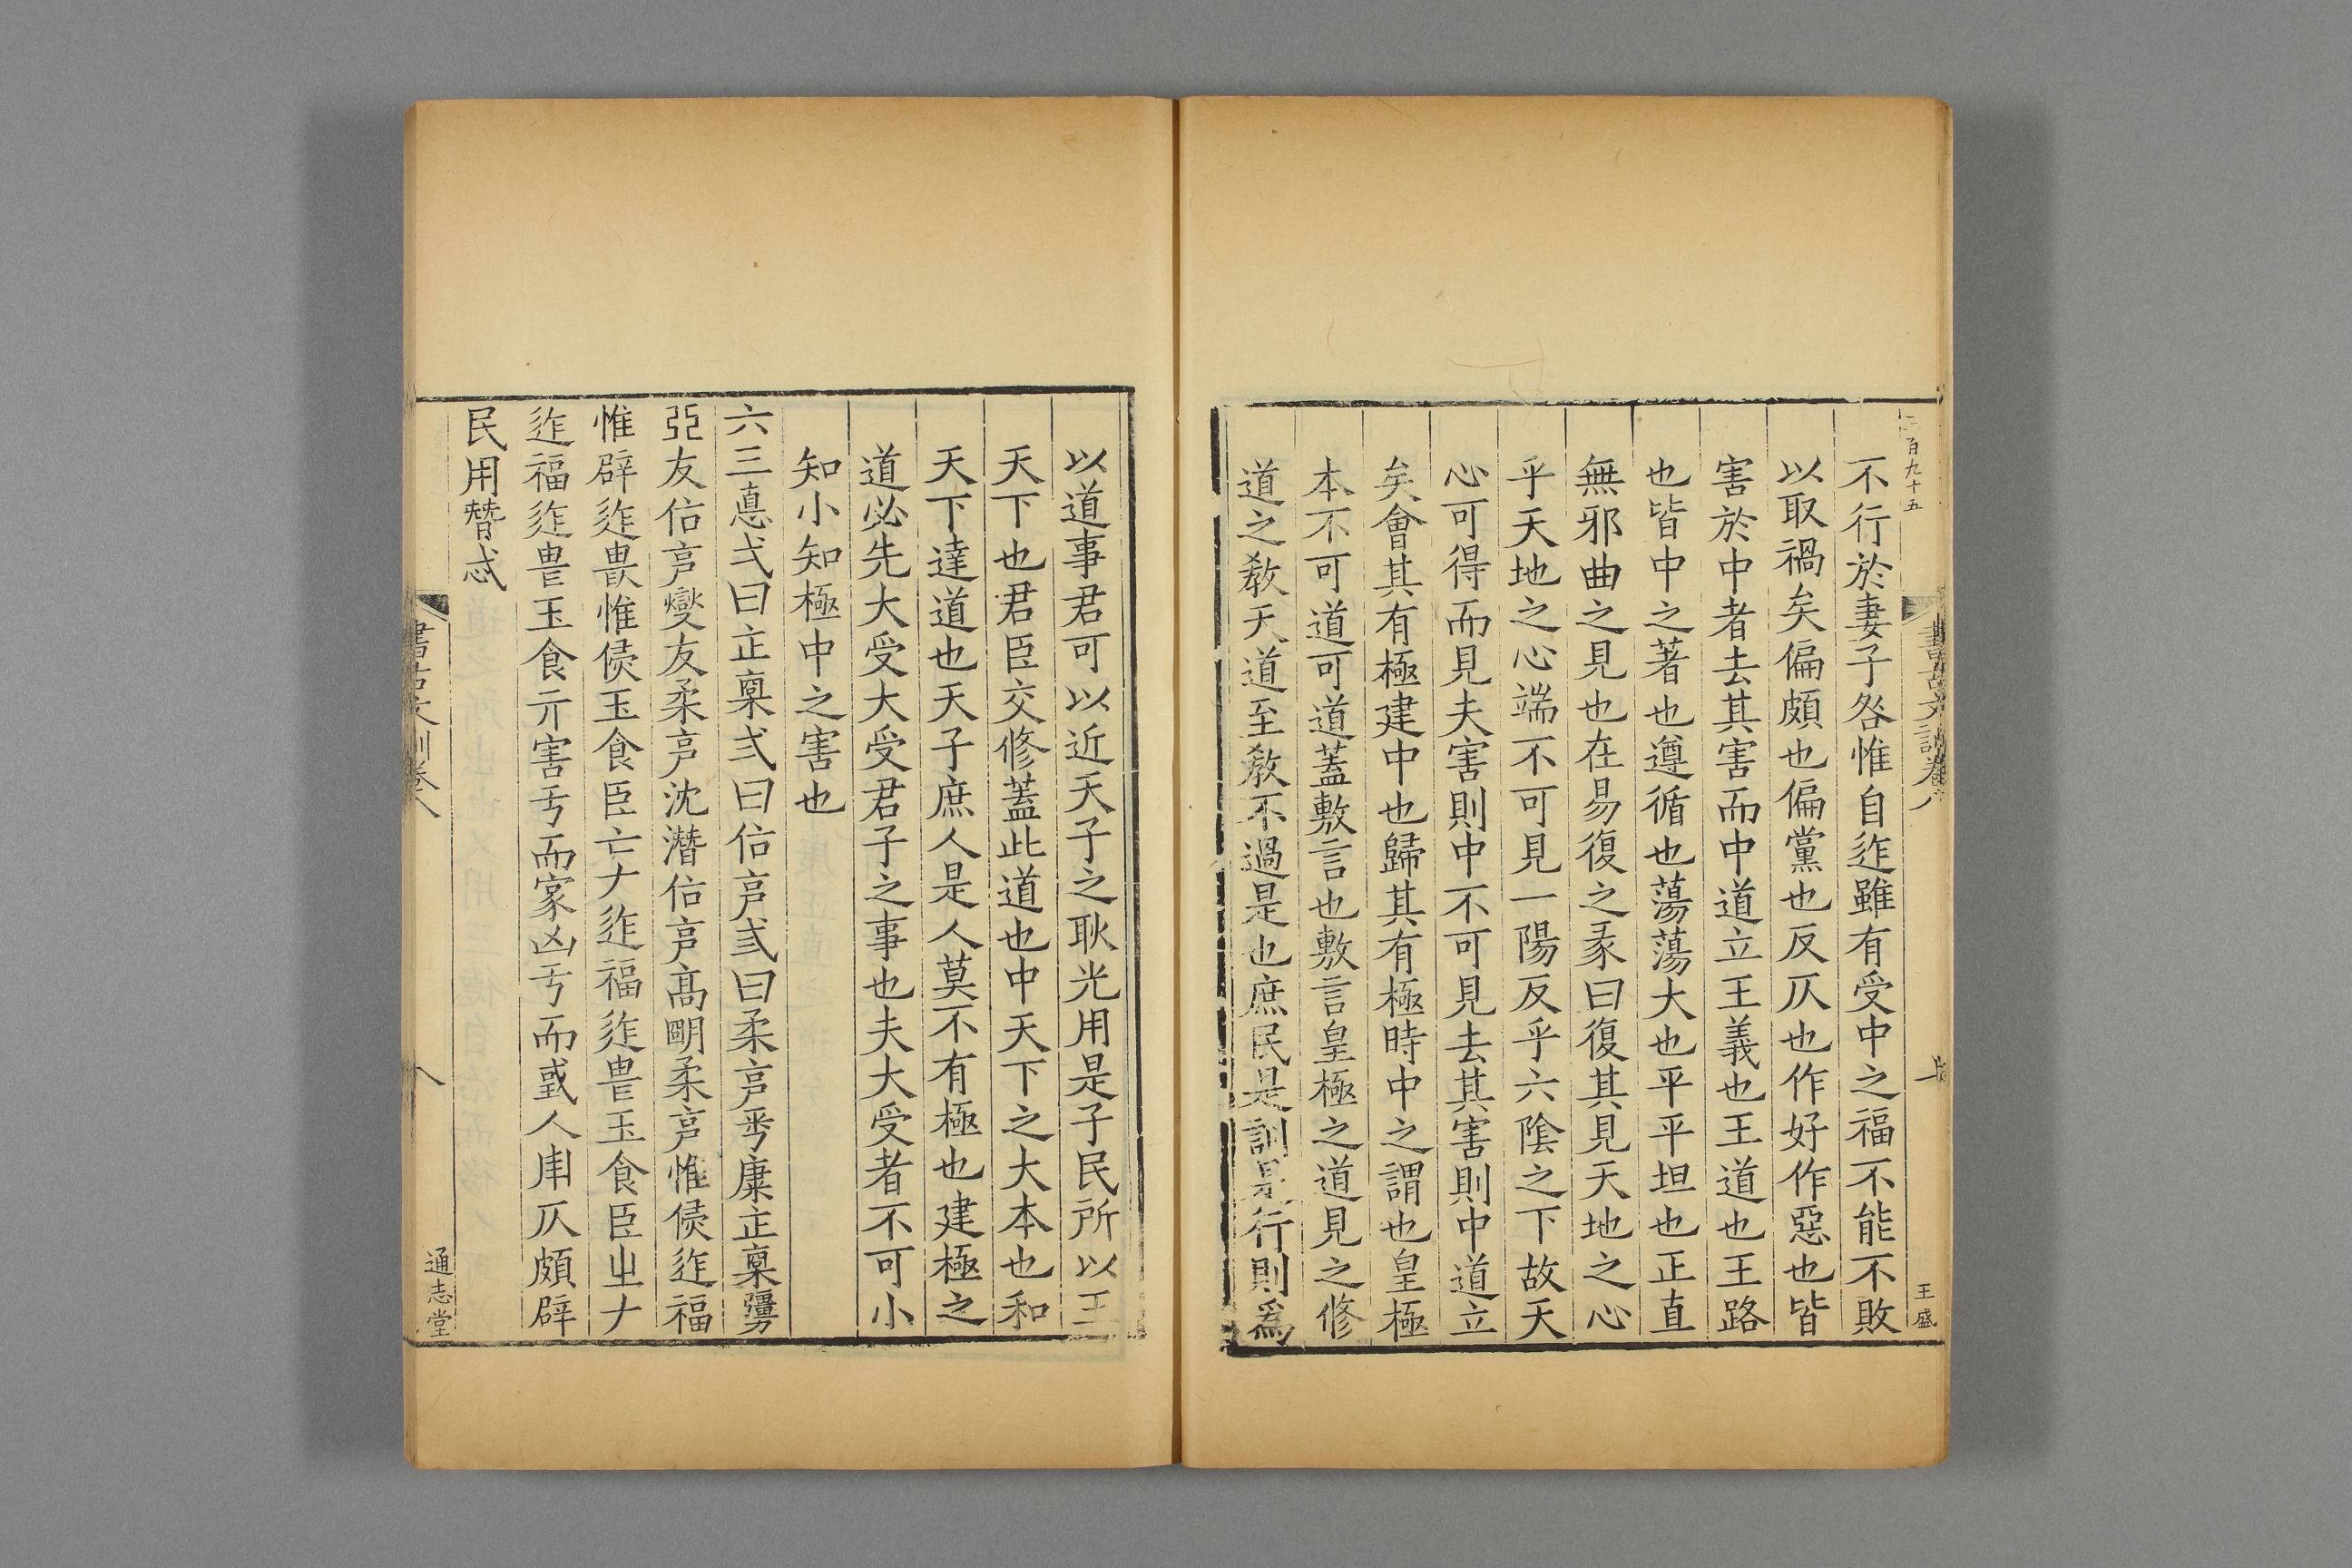 二百九十五
書古文訓卷八
七
王盛
不行於妻子咎惟自迮雖有受中之福不能不敗
以取禍矣偏頗也偏黨也反仄也作好作惡也皆
害於中者去其害而中道立王義也王道也王路
也皆中之著也遵循也蕩蕩大也平平坦也正直
無邪曲之見也在易復之彖曰復其見天地之心
乎天地之心端不可見一陽反乎六陰之下故天
心可得而見夫害則中不可見去其害則中道立
矣會其有極建中也歸其有極時中之謂也皇極
本不可道可道蓋敷言也敷言皇極之道見之修
道之教天道至教不過是也庶民是訓是行則爲
以道事君可以近天子之耿光用是子民所以王
天下也君臣交修蓋此道也中天下之大本也和
天下達道也天子庶人是人莫不有極也建極之
道必先大受大受君子之事也夫大受者不可小
知小知極中之害也
六三悳弌曰正稟弍曰㐰㐭弎曰柔㐭秊康正稟彊
亞友㐰㐭燮友柔㐭沈潛㐰㐭高朙柔㐭惟矦迮福
惟辟迮畏惟矦玉食臣亡𠂇迮福迮畏玉食臣㞢𠂇
迮福迮畏玉食亓害亐而家凶亐而或人𤰃仄頗辟
民用朁忒
書古文訓卷八
八
通志堂